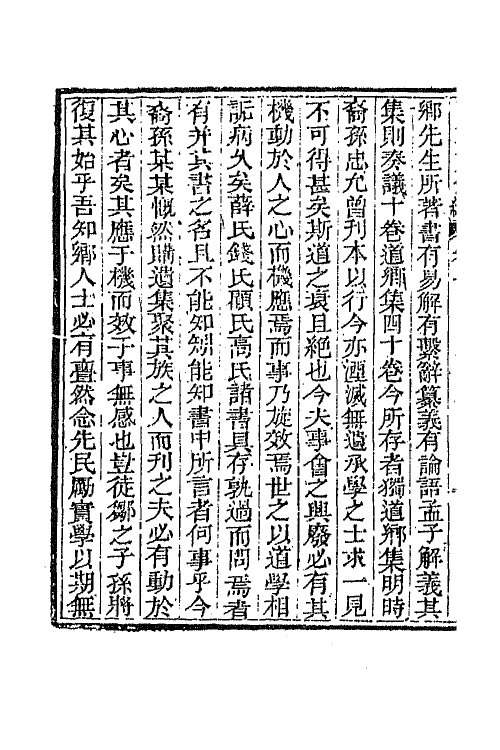 鄉先生所著書有易解有繫辭纂義有論語孟子解義其
集則奏議十卷道鄉集四十卷今所存者獨道鄉集明時
裔孫忠允曾刊本以行今亦湮滅無遺承學之士求一見
不可得甚矣斯道之衰且絶也今夫事會之興廢必有其
機動於人之心而機應焉而事乃旋效焉世之以道學相
詬病久矣薛氏錢氏顧氏高氏諸書具存孰過而問焉者
有并其書之名且不能知矧能知書中所言者何事乎今
裔孫某某慨然購遺集聚其族之人而刊之夫必有動於
其心者矣其應于機而效于事無感也豈徒鄒之子孫將
復其始乎吾知鄉人士必有亹然念先民勵實學以期無